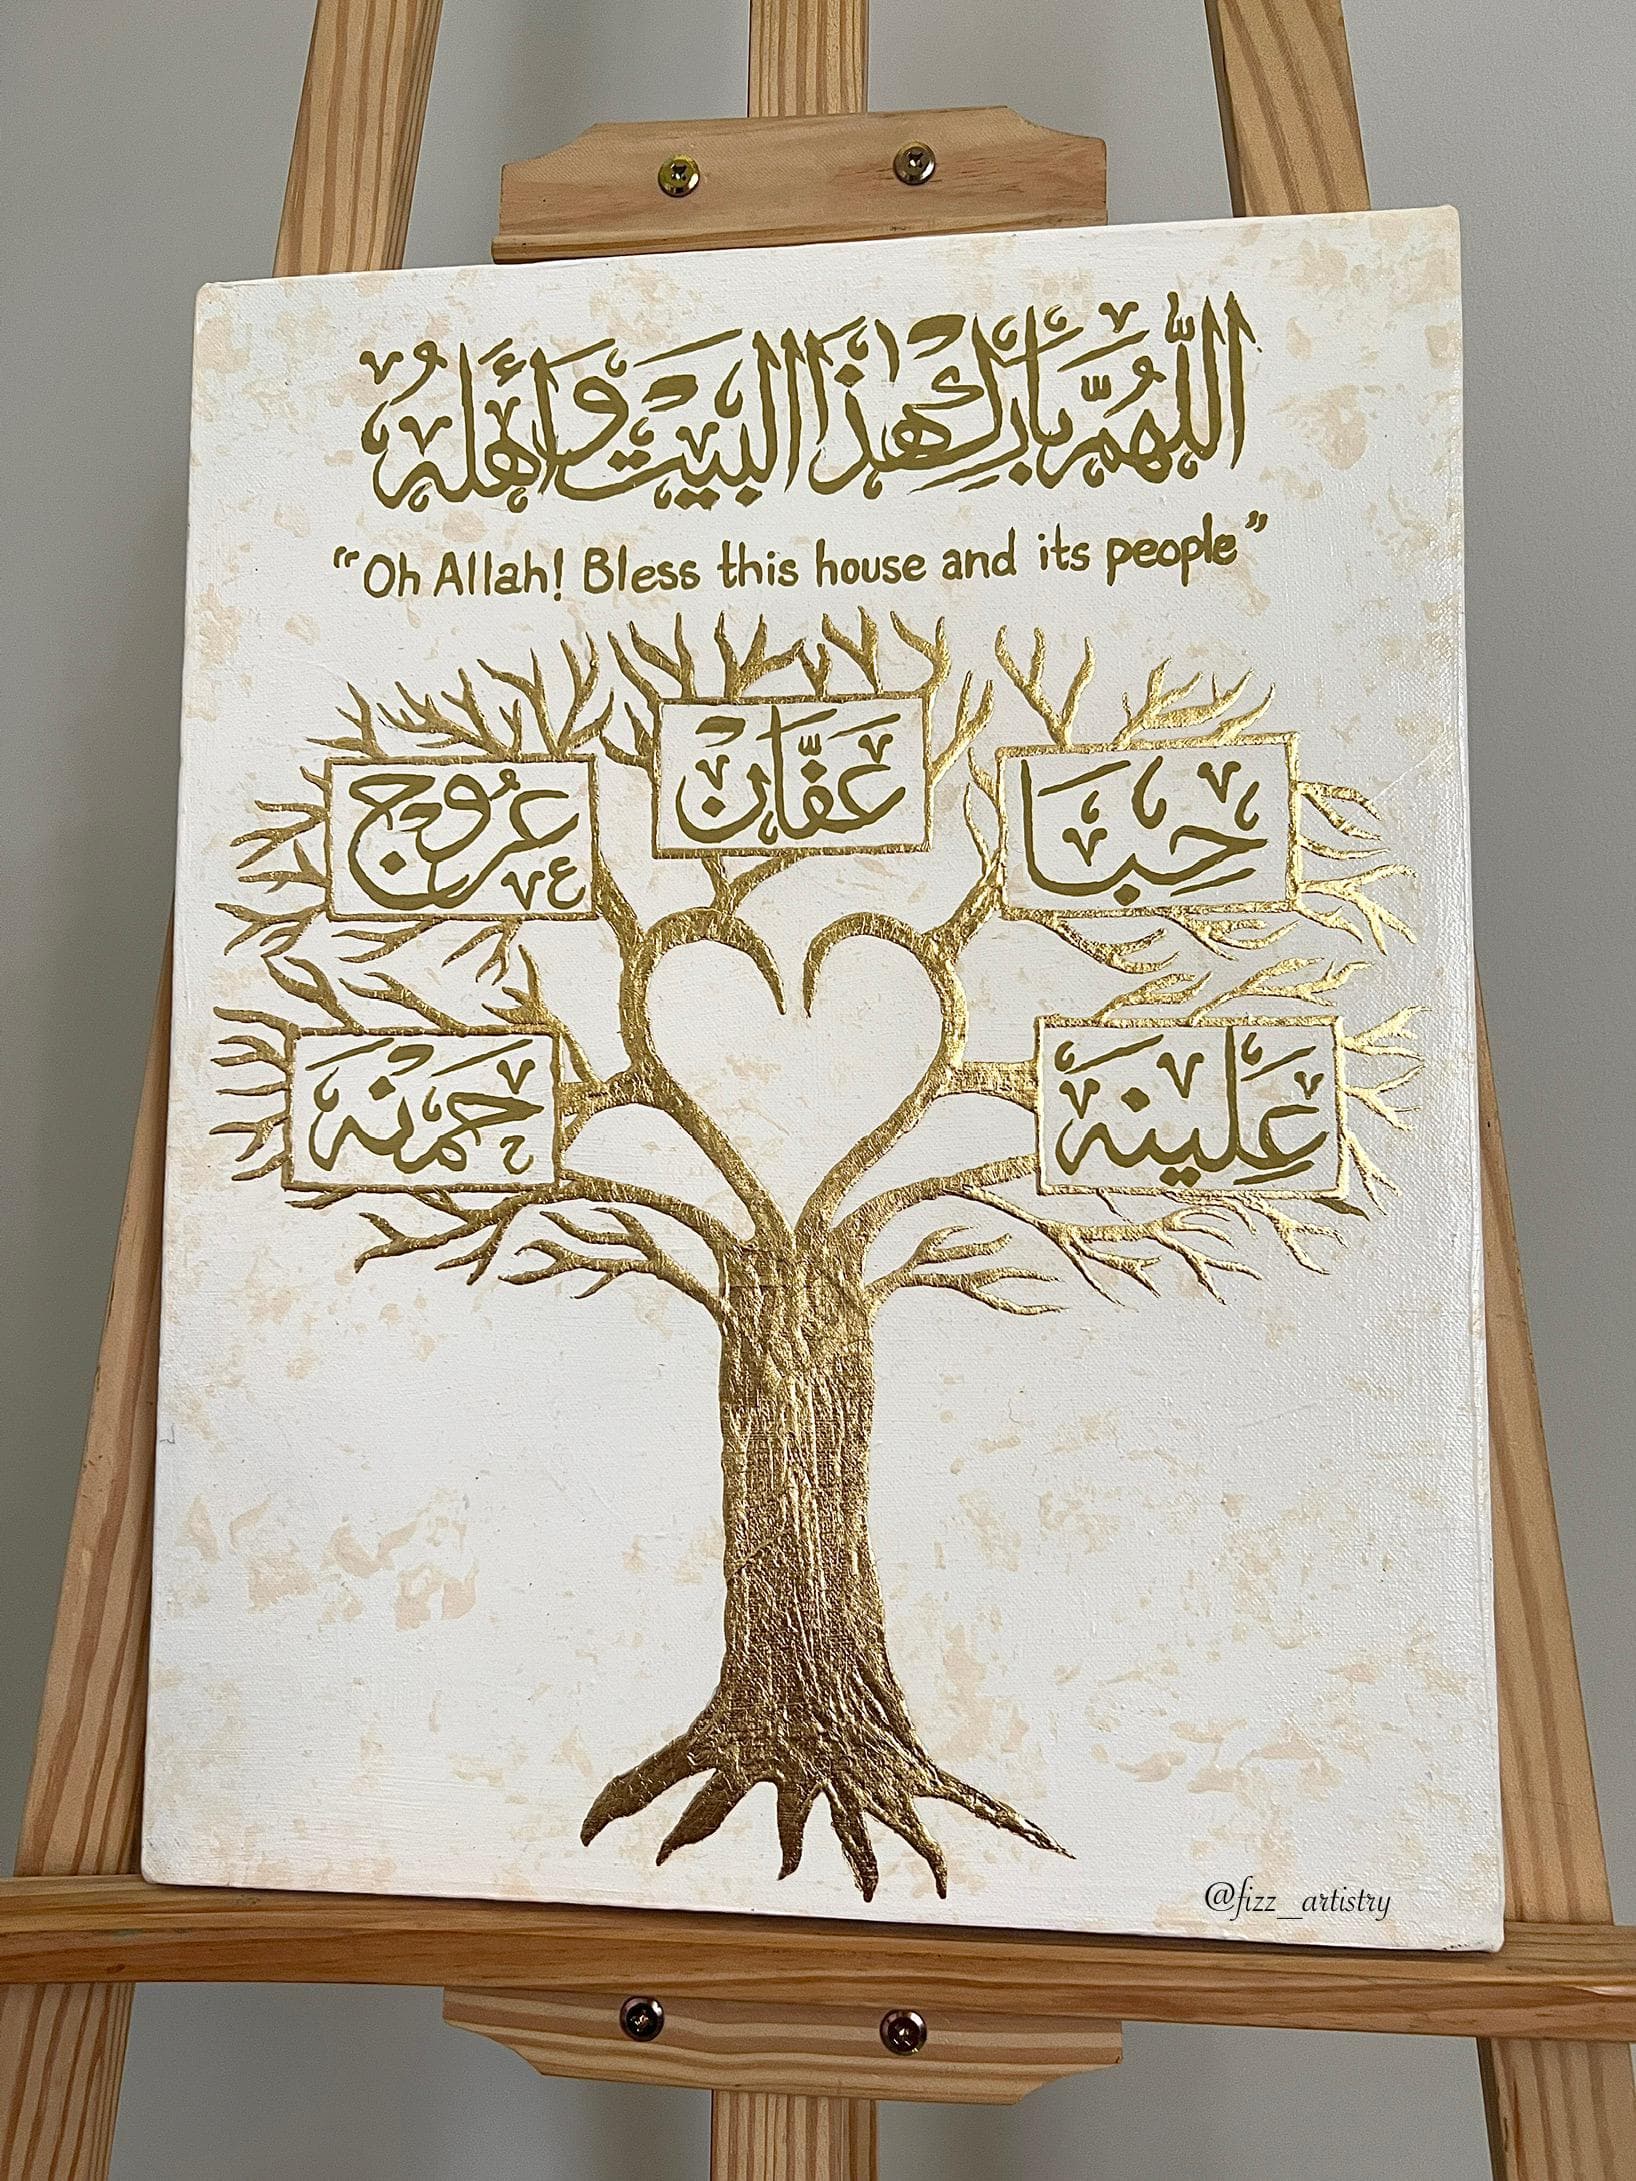 اللّٰهُمَّ بَارِكْ هٰذَا الْبَيْتَ وَأَهْلَهُ
“Oh Allah! Bless this house and its people”
عَفَّان
حِبَا
عُرُوج
عَلِينَه
حَمْنَه
@fizz_artistry